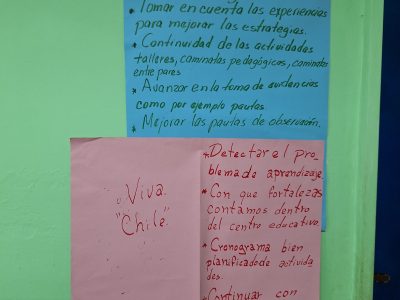 * Tomar en cuenta las experiencias
para mejorar las estrategias.
* Continuidad de las actividades
talleres, caminatas pedagógicas, caminatas
entre pares
* Avanzar en la toma de evidencias
como por ejemplo pautas
* Mejorar las pautas de observación.
¡Viva
"Chile"
* Detectar el pro-
blema de aprendizaje.
* Con que fortalezas
contamos dentro
del centro educativo
* Cronograma bien
planificado de activida
des.
* Continuar con